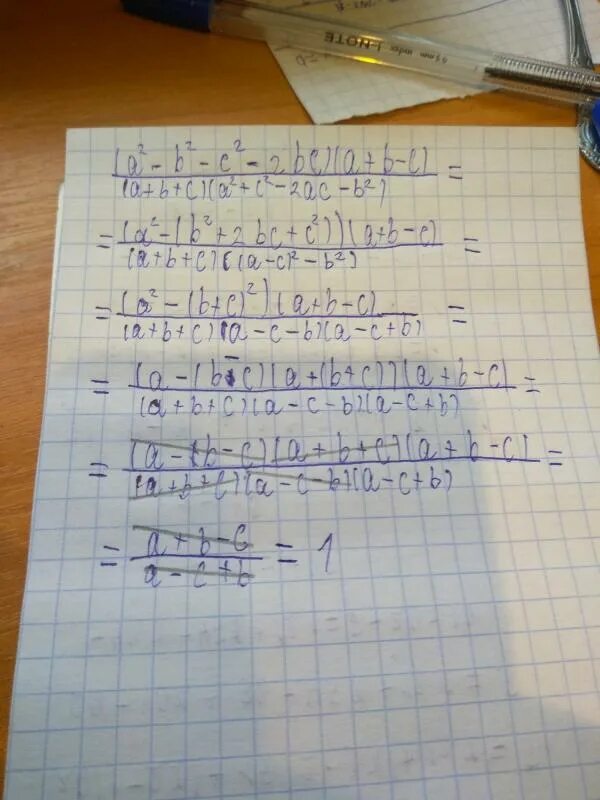 I-NOTE 0.5 mm index
(a² - b² - c² - 2bc)(a+b-c) / (a+b+c)(a²+c²-2ac-b²) =
= (a² - (b² + 2bc + c²))(a+b-c) / (a+b+c)((a-c)² - b²) =
= (a² - (b+c)²)(a+b-c) / (a+b+c)(a-c-b)(a-c+b) =
= (a - (b-c)(a+(b+c))(a+b-c) / (a+b+c)(a-c-b)(a-c+b) =
= (a-b-c)(a+b+c)(a+b-c) / (a+b+c)(a-c-b)(a-c+b) =
= a+b-c / a-c+b = 1